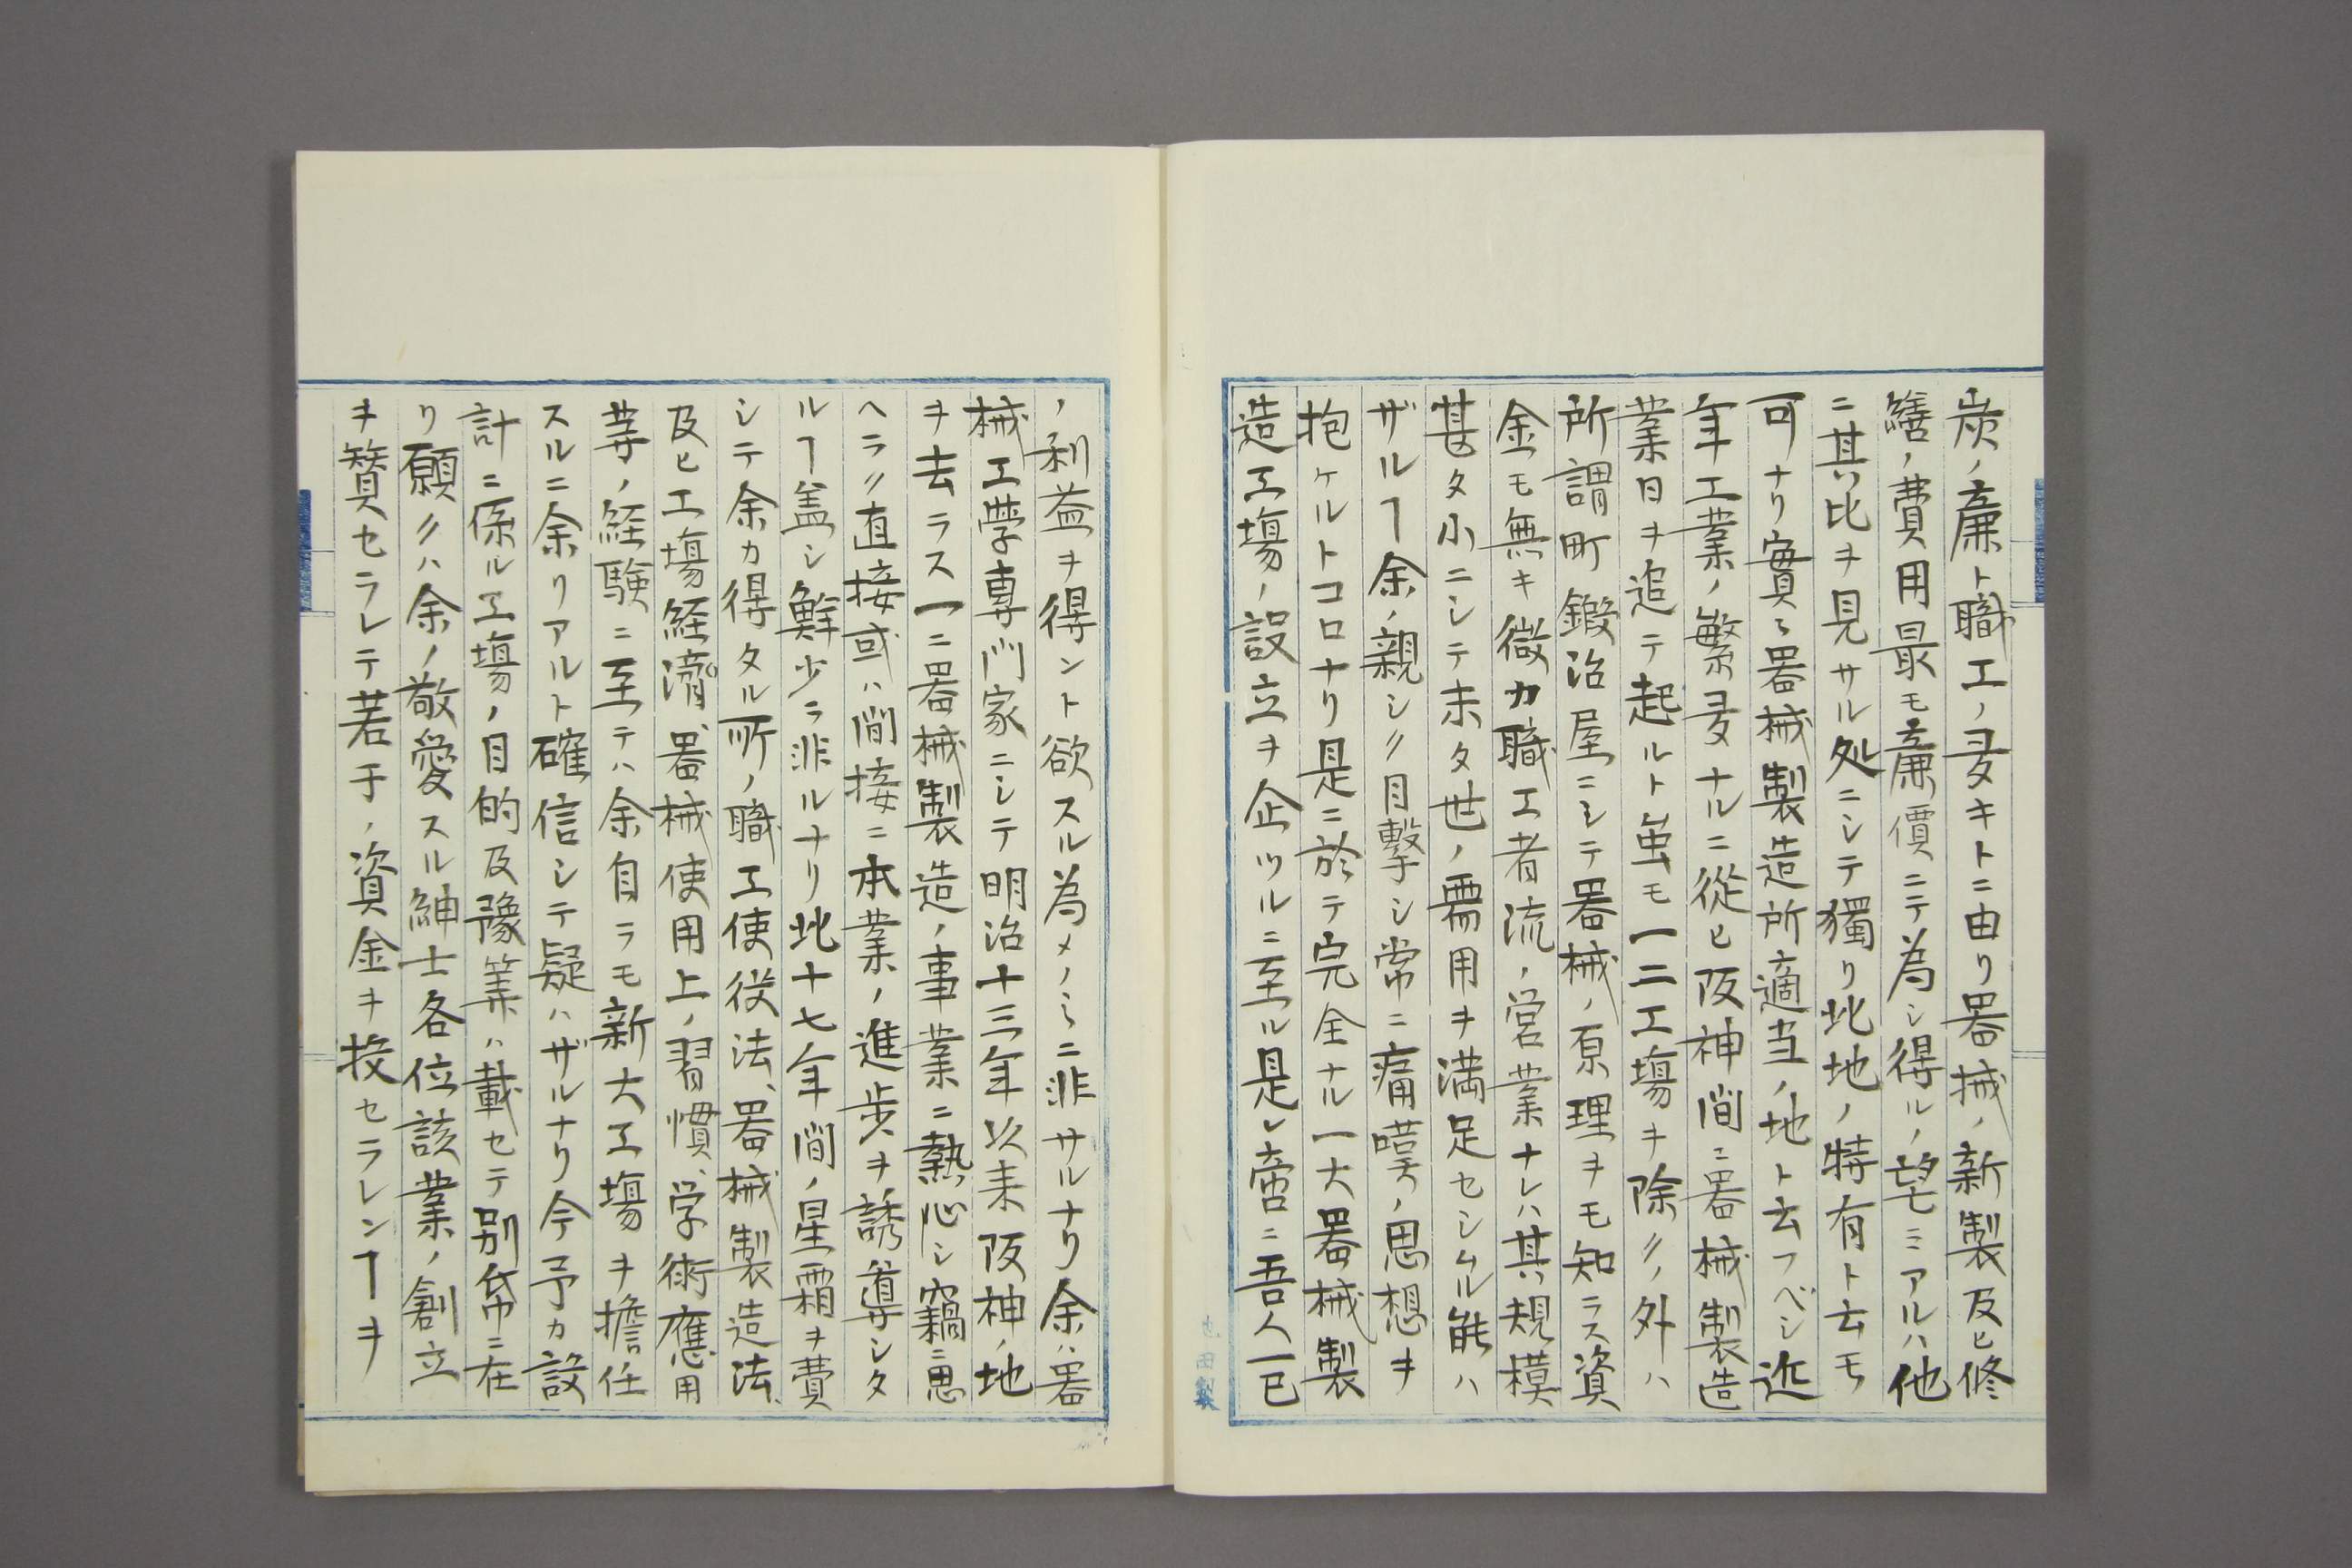 炭ノ廉ト職工ノ多キトニ由リ器械ノ新製及ヒ修
繕ノ費用最モ廉價ニテ為シ得ルノ望ミアルハ他
ニ其比ヲ見サル処ニシテ獨リ此地ノ特有ト云モ
可ナリ實ニ器械製造所適当ノ地ト云フベシ近
年工業ノ繁多ナルニ從ヒ阪神間ニ器械製造
業日ヲ追テ起ルト虽モ一二工場ヲ除クノ外ハ
所謂町鍛治屋ニシテ器械ノ原理ヲモ知ラス資
金モ無キ微力職工者流ノ営業ナレハ其規模
甚タ小ニシテ未タ世ノ需用ヲ満足セシムル能ハ
ザルヿ余ノ親シク目撃シ常ニ痛嘆ノ思想ヲ
抱ケルトコロナリ是ニ於テ完全ナル一大器械製
造工場ノ設立ヲ企ツルニ至ル是レ啻ニ吾人一已
ノ利益ヲ得ント欲スル為メノミニ非サルナリ余ハ器
械工學専門家ニシテ明治十三年以来阪神ノ地
ヲ去ラス一ニ器械製造ノ事業ニ熱心シ竊ニ思
ヘラク直接或ハ間接ニ本業ノ進歩ヲ誘導シタ
ルヿ盖シ鮮少ニ非ルナリ此十七年間ノ星霜ヲ費
シテ余カ得タル所ノ職工使役法、器械製造法、
及ヒ工場経濟、器械使用上ノ習慣、学術應用
等ノ経験ニ至テハ余自ラモ新大工場ヲ擔任
スルニ余リアルト確信シテ疑ハザルナリ今予カ設
計ニ係ル工場ノ目的及豫算ハ載セテ別帋ニ在
リ願クハ余ノ敬愛スル紳士各位該業ノ創立
ヲ賛セラレテ若干ノ資金ヲ投セラレンヿヲ